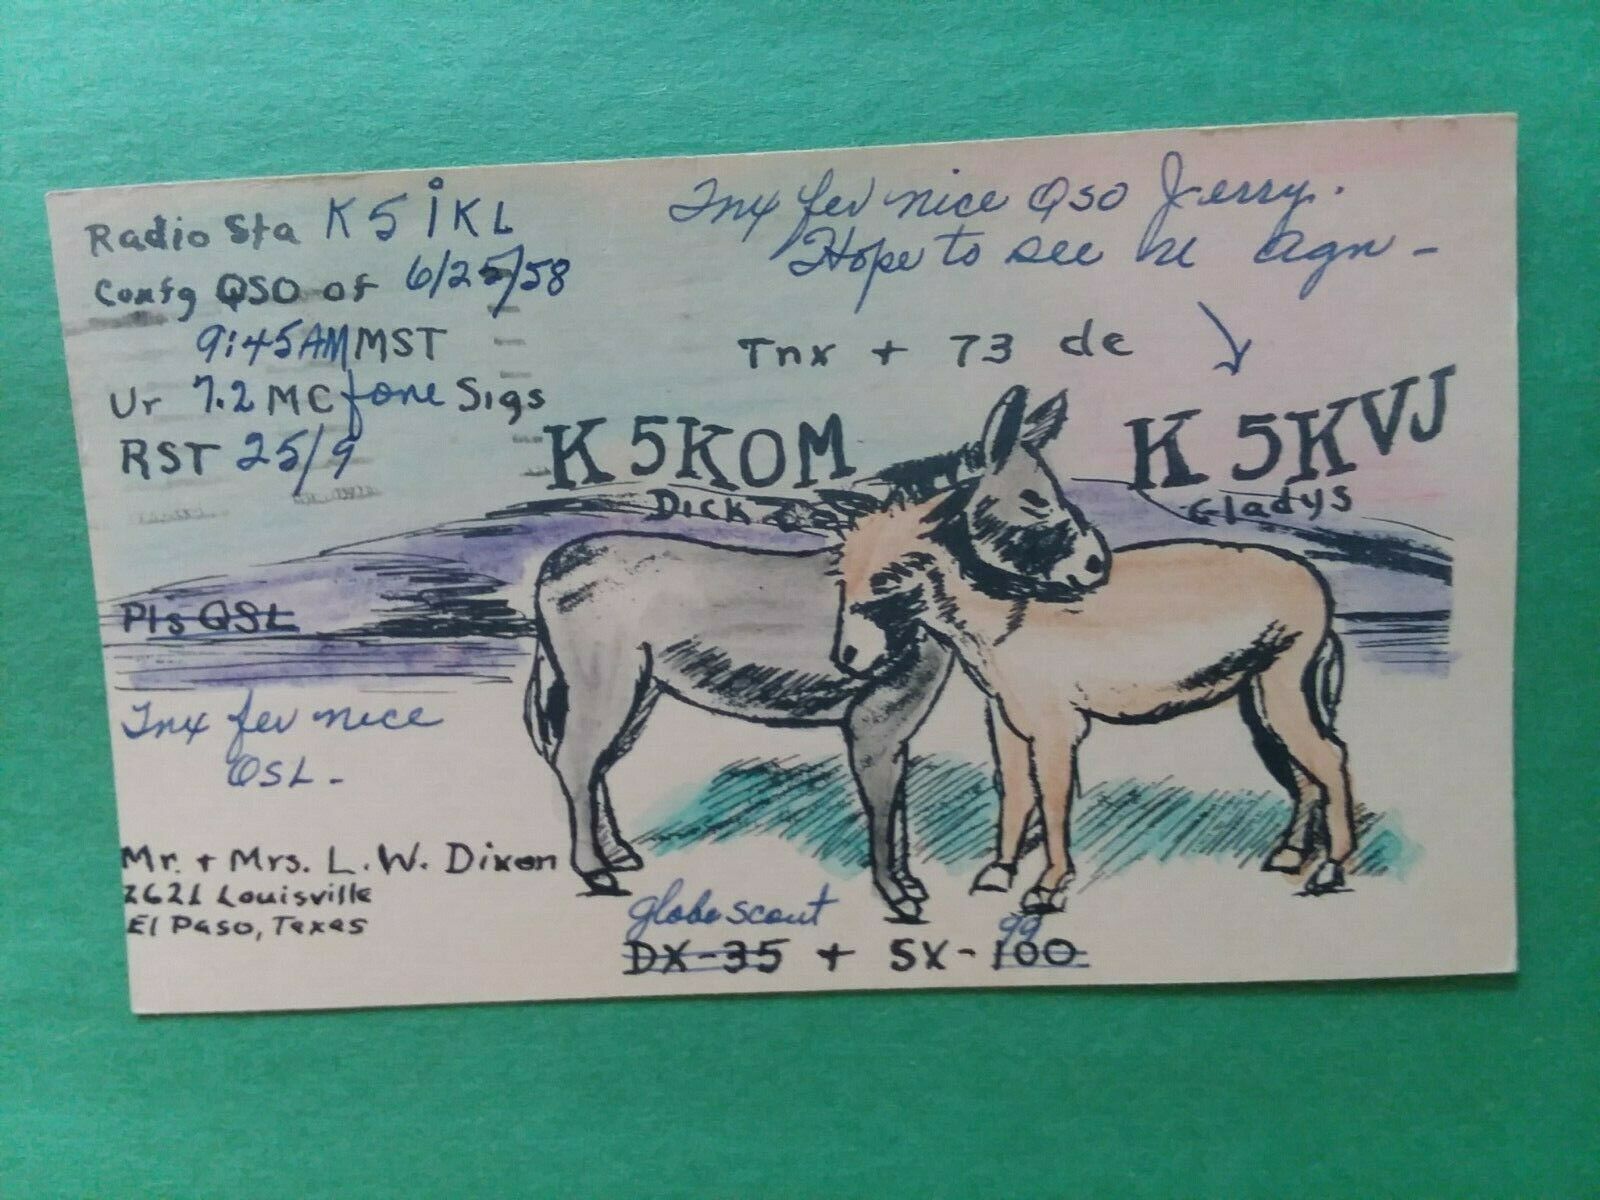 Radio Sta K5IKL
Confg QSO of 6/25/58
9:45AM MST
Ur 7.2 MC fone Sigs
RST 25/9
Pls QSL
Tnx fer nice
QSL -
Mr. + Mrs. L. W. Dixon
2621 Louisville
El Paso, Texas
Tnx fer nice QSO Jerry.
Hope to see u agn -
Tnx + 73 de
K5KOM
Dick
K5KVJ
Gladys
globe scout 99
DX-35 + SX-100